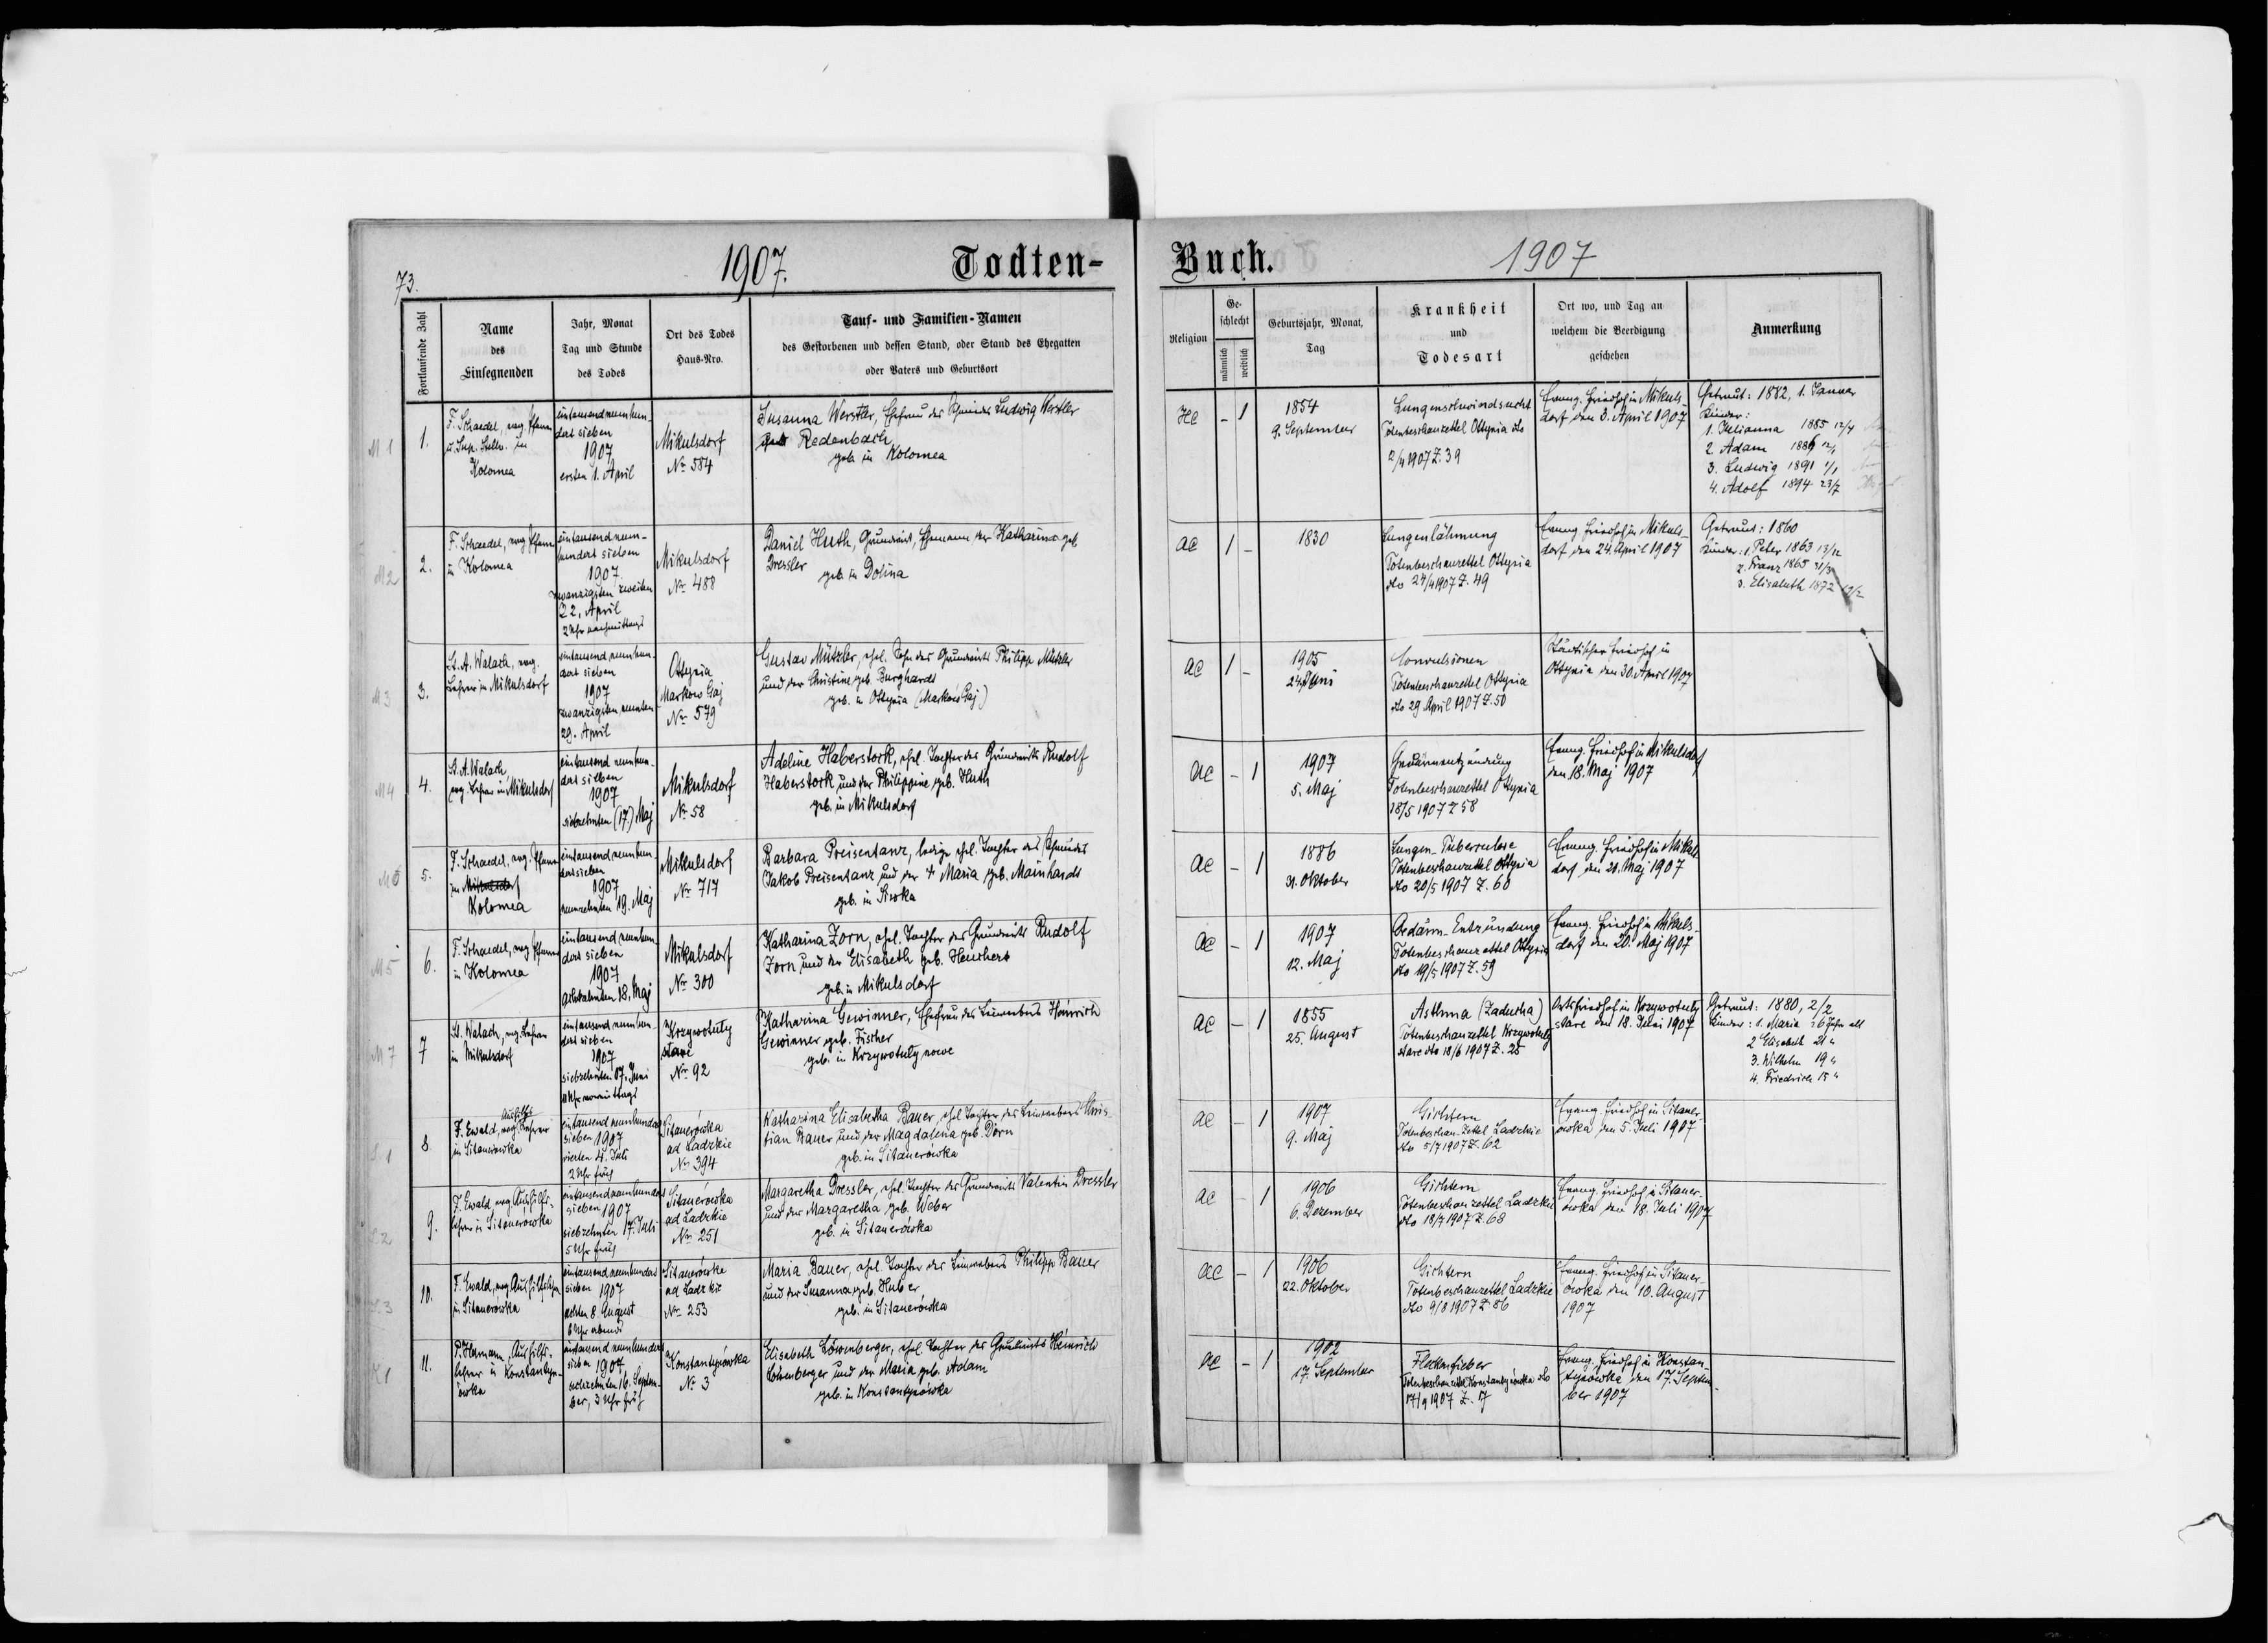 73.
1907.
Todten-
Fortlaufende Zahl
Name
des
Einsegnenden
Jahr, Monat
Tag und Stunde
des Todes
Ort des Todes
Haus-Nro.
Tauf- und Familien-Namen
des Gestorbenen und dessen Stand, oder Stand des Ehegatten
oder Vaters und Geburtsort
M 1
1.
F. Schaedel, evg. Pfarrer
u. Sup. Stellv. in
Kolomea
eintausendneunhun-
dert sieben
1907
ersten 1. April
Mikulsdorf
No 584
Susanna Werstler, Ehefrau des Ludwig Werstler
Redenbach
geb. in Kolomea
M2
2.
F. Schaedel, evg. Pfarrer
in Kolomea
eintausendneun-
hundert sieben
1907.
zwanzigsten zweiten
22. April
2 Uhr nachmittags
Mikulsdorf
No 488
Daniel Huth, Grundwirt, Ehemann der Katharina geb
Dressler
geb. in Dolina
M3
3.
St. A. Walach, evg.
Lehrer in Mikulsdorf
eintausend neunhun-
dert sieben
1907
zwanzigsten neunten
29. April
Ottynia
(Markow Gaj
No 579
Gustav Mützler, ehel. Sohn des Grundwirts Philipp Mützler
und der Christine geb. Burghardt
geb. in Ottynia (Markow Gaj)
M4
4.
St. A. Walach,
evg. Lehrer in Mikulsdorf
eintausend neunhun-
dert sieben
1907
siebzehnten (17.) Maj
Mikulsdorf
No 58
Adeline Haberstock, ehel. Tochter des Grundwirts Rudolf
Haberstock und der Philippine geb. Huth
geb. in Mikulsdorf
M6
5.
F. Schaedel, evg. Pfarrer
in Mikulsdorf
Kolomea
eintausendneunhun-
dert sieben
1907
neunzehnten 19. Maj
Mikulsdorf
No 717
Barbara Preisentanz, ledige ehel. Tochter des
Jakob Preisentanz und der + Maria geb. Mainhardt
geb. in Siwka
M5
6.
F. Schaedel, evg. Pfarrer
in Kolomea
eintausend neunhun-
dert sieben
1907
achtzehnten 18. Maj
Mikulsdorf
No 300
Katharina Zorn, ehel. Tochter des Grundwirts Rudolf
Zorn und der Elisabeth geb. Heuchert
geb. in Mikulsdorf
M7
7
St. Walach, evg. Lehrer
in Mikulsdorf
eintausend neunhun-
dert sieben
1907
siebzehnten 17. Juni
11 Uhr vormittags
Krzywotuły
stare
No 92
Katharina Gewinner, Ehefrau des Leinwebers Heinrich
Gewinner geb. Fischer
geb. in Krzywotuły nowe
8
F. Ewald, evg. Aushilfs Lehrer
in Sitauerowka
eintausend neunhundert
sieben 1907
vierten 4. Juli
2 Uhr früh
Sitauerówka
ad Ladzkie
No 394
Katharina Elisabetha Bauer, ehel Tochter des Leinwebers Chris-
tian Bauer und der Magdalena geb. Dorn
geb. in Sitauerówka
9.
F. Ewald, evg. Aushilfs-
lehrer in Sitauerówka
eintausend neunhundert
sieben 1907
siebzehnten 17. Juli
5 Uhr früh
Sitauerówka
ad Ladzkie
No 251
Margaretha Dressler, ehel. Tochter des Grundwirts Valentin Dressler
und der Margaretha geb. Weber
geb. in Sitauerówka
10.
F. Ewald, evg. Aushilfslehrer
in Sitauerowka
eintausend neunhundert
sieben 1907
achten 8. August
6 Uhr abends
Sitauerówka
ad Ladzkie
No 253
Maria Bauer, ehel. Tochter des Leinwebers Philipp Bauer
und der Susanna geb. Huber
geb. in Sitauerówka
K1
11.
P. Hermann, Aushilfs-
lehrer in Konstantyn-
ówka
eintausend neunhundert
sieben 1907
sechzehnten 16. Septem-
ber, 3 Uhr früh
Konstantynówka
No 3
Elisabeth Löwenberger, ehel. Tochter des Grundwirts Heinrich
Löwenberger und der Maria geb. Adam
geb. in Konstantynówka
Buch.
1907
Religion
Ge-
schlecht
männlich
weiblich
Geburtsjahr, Monat,
Tag
Krankheit
und
Todesart
Ort wo, und Tag an
welchem die Beerdigung
geschehen
Anmerkung
HC
-
1
1854
9. September
Lungenschwindsucht
Totenbeschauzettel Ottynia dto
2/4 1907 Z. 39
Evang. Friedhof in Mikuls-
dorf den 3. April 1907
Getraut: 1882, 1. Januar
Kinder:
1. Julianna 1885 12/4
2. Adam
3. Ludwig 1891 1/1
4. Adolf 1894 23/7
AC
1
-
1830
Lungenlähmung
Totenbeschauzettel Ottynia
dto 24/4 1907 Z. 49
Evang. Friedhof in Mikuls-
dorf den 24. April 1907
Getraut: 1860
Kinder: 1. Peter 1863 13/12
2. Franz 1865 31/3
3. Elisabeth 1872
AC
1
-
1905
24. Juni
Convulsionen
Totenbeschauzettel Ottynia
dto 29 April 1907 Z. 50
Städtischer Friedhof in
Ottynia den 30. April 1907
AC
-
1
1907
5. Maj
Gedärmentzündung
Totenbeschauzettel Ottynia
18/5 1907 Z 58
Evang. Friedhof in Mikulsdorf
den 18. Maj 1907
AC
-
1
1886
31. Oktober
Lungen-Tuberculose
Totenbeschauzettel Ottynia
dto 20/5 1907 Z. 60
Evang. Friedhof in Mikuls-
dorf den 21. Maj 1907
AC
-
1
1907
12. Maj
Gedärm-Entzündung
Totenbeschauzettel Ottynia
dto 19/5 1907 Z. 59
Evang. Friedhof in Mikuls-
dorf den 20. Maj 1907
AC
-
1
1855
25. August
Asthma (Zaducha)
Totenbeschauzettel Krzywotuły
stare dto 18/6 1907 Z. 25
Ortsfriedhof in Krzywotuły
stare den 18. Juni 1907
Getraut: 1880, 2/2
Kinder: 1. Maria 26 Jahr alt
2 Elisabeth 21 "
3. Wilhelm 19 "
4. Friedrich 15 "
AC
-
1
1907
9. Maj
Gichtern
Totenbeschau-Zettel Ladzkie
dto 5/7 1907 Z. 62
Evang. Friedhof in Sitauer-
ówka den 5. Juli 1907
AC
-
1
1906
6. Dezember
Gichtern
Totenbeschauzettel Ladzkie
dto 18/7 1907 Z. 68
Evang. Friedhof in Sitauer-
ówka den 18. Juli 1907
AC
-
1
1906
22. Oktober
Gichtern
Totenbeschauzettel Ladzkie
dto 9/8 1907 Z. 86
Evang. Friedhof in Sitauer-
ówka den 10. August
1907
AC
-
1
1902
17. September
Fleckenfieber
Totenbeschauzettel Konstantynówka dto
17/9 1907 Z. 17
Evang. Friedhof in Konstan-
tynówka den 17. Septem-
ber 1907